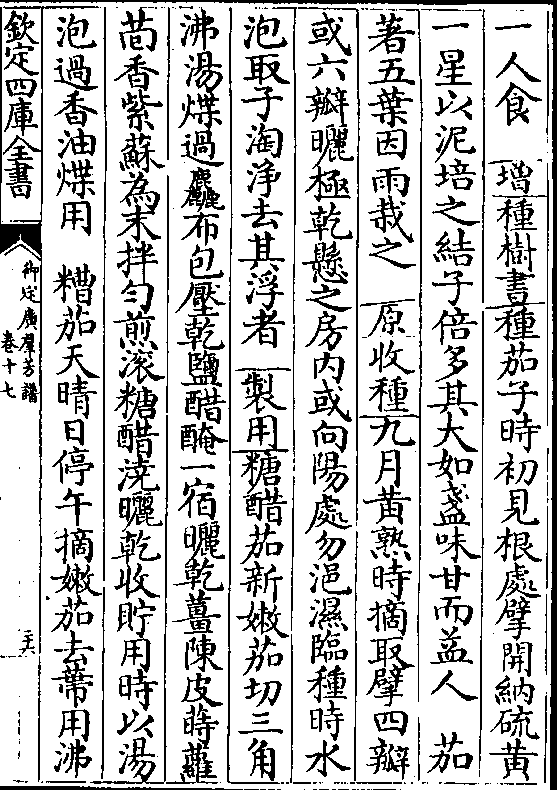 一人食　增種樹書種茄子時初見根處擘開納硫黄
一星以泥培之結子倍多其大如盞味甘而益人　茄
著五葉因雨栽之　原收種九月黄熟時摘取擘四瓣
或六瓣曬極乾懸之房内或向陽處勿浥濕臨種時水
泡取子淘淨去其浮者　製用糖醋茄新嫩茄切三角
沸湯煠過麤布包壓乾鹽醋醃一宿曬乾薑陳皮蒔蘿
茴香紫蘇為末拌匀煎滚糖醋澆曬乾收貯用時以湯
泡過香油煠用　糟茄天晴日停午摘嫩茄去蔕用沸
欽定四庫全書
御定廣羣芳譜
卷十七
二六